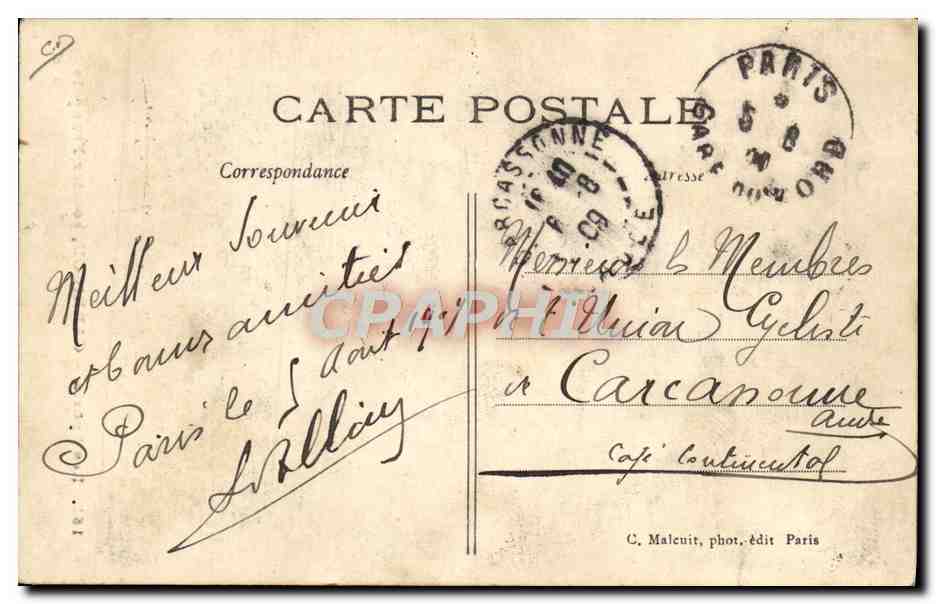 CARTE POSTALE
Correspondance
Adresse
Meilleur Souvenir
et bonnes amitiés
Paris le 5 Août 1909
Messieurs les Membres
de l'Union Cycliste
de Carcassonne
Aude
Café Continental
C. Malcuit, phot.-édit Paris
PARIS
GARE DU NORD
5 8
09
CARCASSONNE
AUDE
6 8
09
CRAPHIL